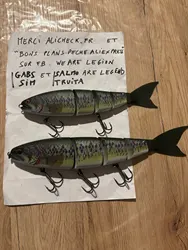 MERCI ALICHECK.FR ET
"BONS PLANS PECHE ALIEXPRESS"
SUR FB. WE ARE LEGION
GABS ET SALMO ARE LEGEND
SIM TRUITA